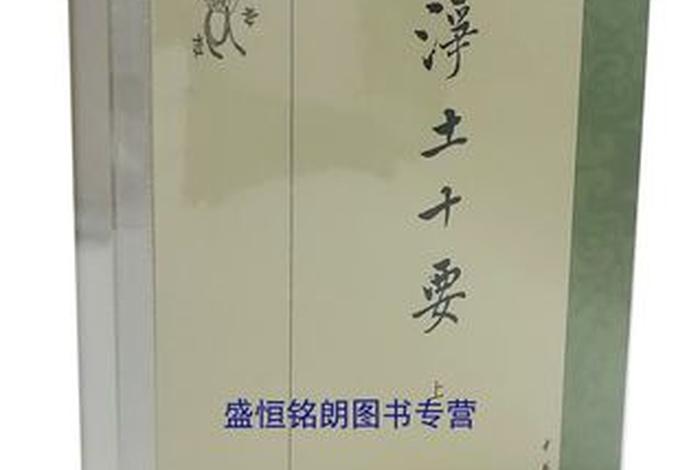 淨土十要
上
盛恒铭朗图书专营